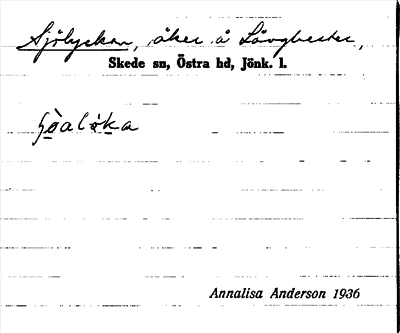 Sjölyckan, åker å Lövghester,
Skede sn, Östra hd, Jönk. l.
Annalisa Anderson 1936